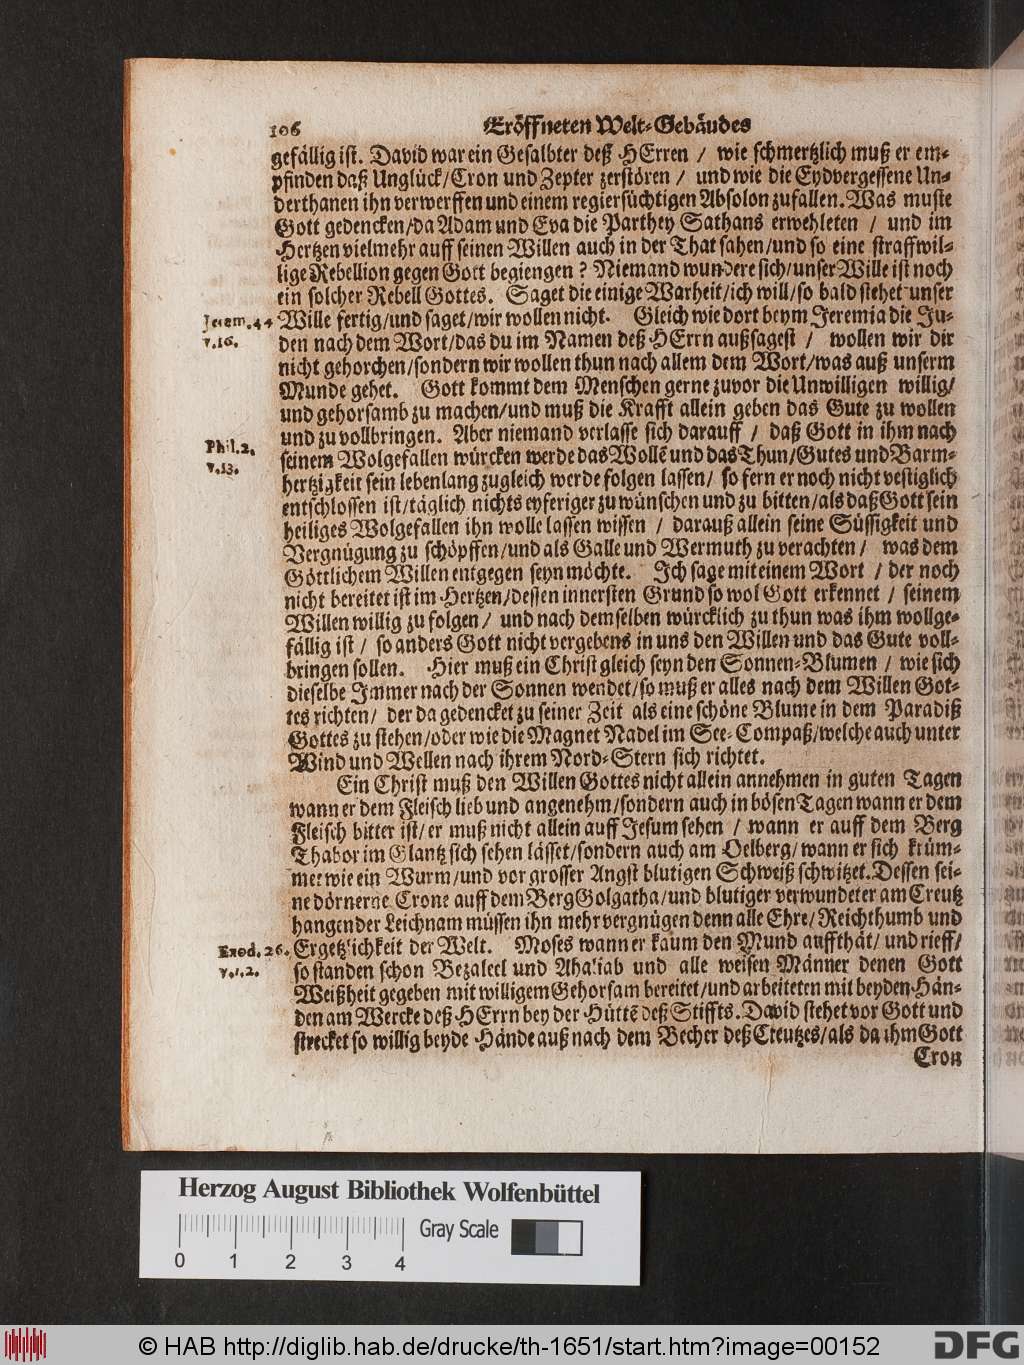 106 Eröffneten Welt-Gebäudes
gefällig ist. David war ein Gesalbter deß HErren / wie schmertzlich muß er em-
pfinden daß Unglück/Cron und Zepter zerstören / und wie die Eydvergessene Un-
derthanen ihn verwerffen und einem regiersüchtigen Absolon zufallen. Was muste
Gott gedencken/da Adam und Eva die Parthey Sathans erwehleten / und im
Hertzen vielmehr auff seinen Willen auch in der That sahen/und so eine straffwil-
lige Rebellion gegen Gott begiengen ? Niemand wundere sich/unser Wille ist noch
ein solcher Rebell Gottes. Saget die einige Warheit/ich will/so bald stehet unser
Jerem. 44 Wille fertig/und saget/wir wollen nicht. Gleich wie dort beym Jeremia die Ju-
v.16. den nach dem Wort/das du im Namen deß HErrn außsagest / wollen wir dir
nicht gehorchen/sondern wir wollen thun nach allem dem Wort/was auß unserm
Munde gehet. Gott kommt dem Menschen gerne zuvor die Unwilligen willig/
und gehorsamb zu machen/und muß die Krafft allein geben das Gute zu wollen
Phil.2. und zu vollbringen. Aber niemand verlasse sich darauff / daß Gott in ihm nach
v.13. seinem Wolgefallen würcken werde das Wollē und das Thun/Gutes und Barm-
hertzigkeit sein lebenlang zugleich werde folgen lassen/ so fern er noch nicht vestiglich
entschlossen ist/täglich nichts eyferiger zu wünschen und zu bitten/als daß Gott sein
heiliges Wolgefallen ihn wolle lassen wissen / darauß allein seine Süssigkeit und
Vergnügung zu schöpffen/und als Galle und Wermuth zu verachten / was dem
Göttlichem Willen entgegen seyn möchte. Ich sage mit einem Wort / der noch
nicht bereitet ist im Hertzen/dessen innersten Grund so wol Gott erkennet / seinem
Willen willig zu folgen/ und nach demselben würcklich zu thun was ihm wollge-
fällig ist / so anders Gott nicht vergebens in uns den Willen und das Gute voll-
bringen sollen. Hier muß ein Christ gleich seyn den Sonnen-Blumen / wie sich
dieselbe Immer nach der Sonnen wendet/so muß er alles nach dem Willen Got-
tes richten/ der da gedencket zu seiner Zeit als eine schöne Blume in dem Paradiß
Gottes zu stehen/oder wie die Magnet Nadel im See-Compaß/welche auch unter
Wind und Wellen nach ihrem Nord-Stern sich richtet.
Ein Christ muß den Willen Gottes nicht allein annehmen in guten Tagen
wann er dem Fleisch lieb und angenehm/sondern auch in bösen Tagen wann er dem
Fleisch bitter ist/er muß nicht allein auff Jesum sehen / wann er auff dem Berg
Thabor im Glantz sich sehen lässet/sondern auch am Oelberg/wann er sich krüm-
met wie ein Wurm/und vor grosser Angst blutigen Schweiß schwitzet. Dessen sei-
ne dörnerne Crone auff dem Berg Golgatha/und blutiger verwundeter am Creutz
hangender Leichnam müssen ihn mehr vergnügen denn alle Ehre/Reichthumb und
Exod. 26. Ergetzlichkeit der Welt. Moses wann er kaum den Mund auffthät/und rieff/
v.1.2. so standen schon Bezaleel und Ahaliab und alle weisen Männer denen Gott
Weißheit gegeben mit willigem Gehorsam bereitet/und arbeiteten mit beyden Hän-
den am Wercke deß HErrn bey der Hüttē deß Stiffts. David stehet vor Gott und
strecket so willig beyde Hände auß nach dem Becher deß Creutzes/als da ihm Gott
Cron
Herzog August Bibliothek Wolfenbüttel
Gray Scale
0 1 2 3 4
© HAB http://diglib.hab.de/drucke/th-1651/start.htm?image=00152 DFG